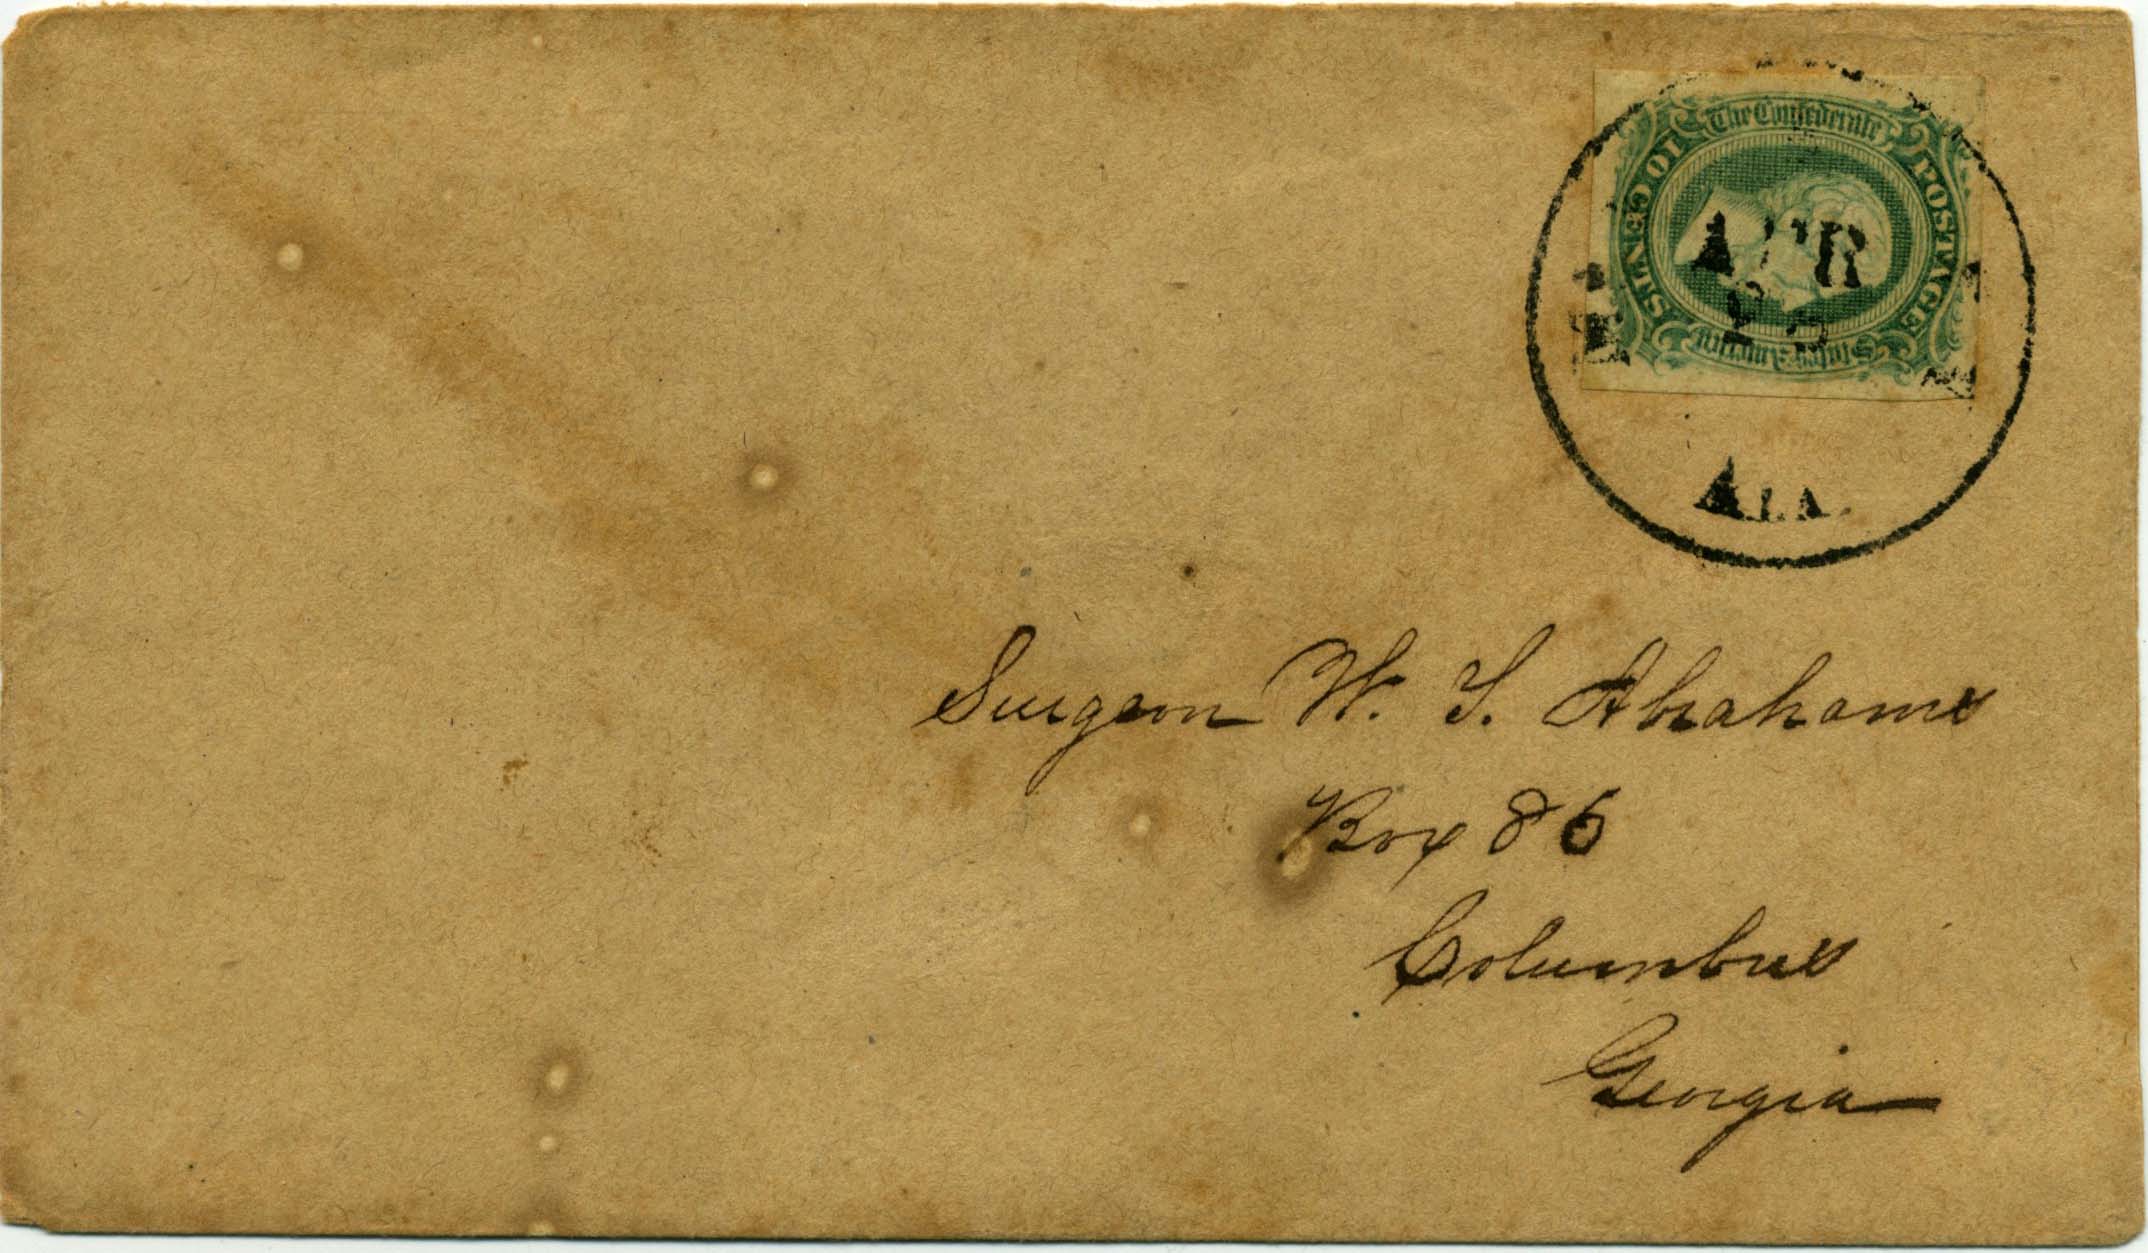 The Confederate
10 CENTS
POSTAGE
States America
APR
ALA.
Surgeon W. S. Abrahams
Box 86
Columbus
Georgia